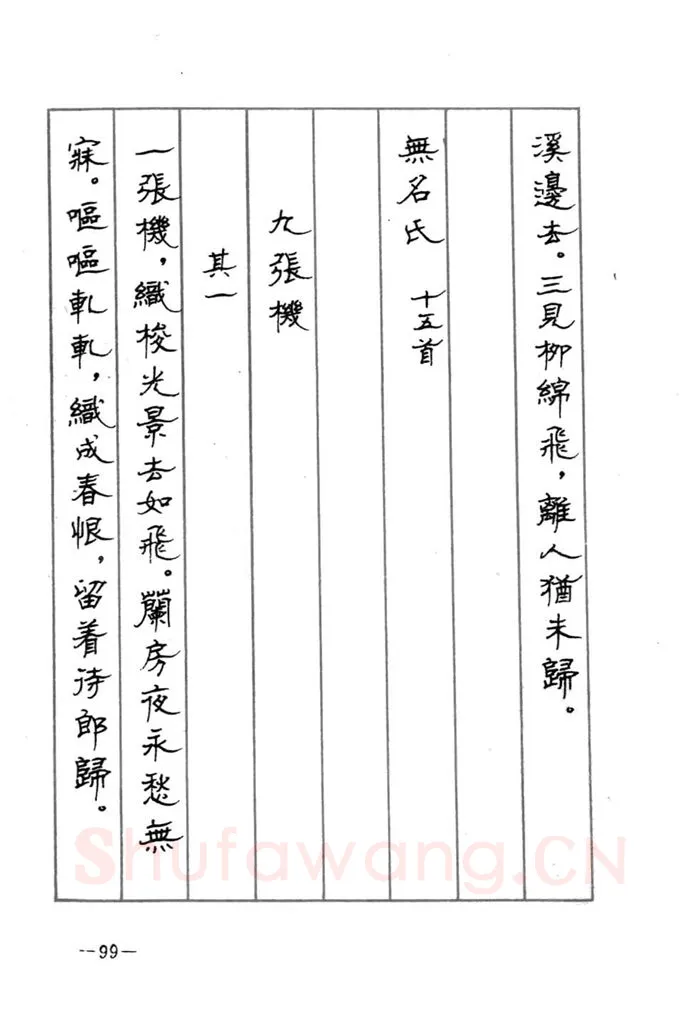 溪邊去。三見柳綿飛，離人猶未歸。
無名氏 十五首
九張機
其一
一張機，織梭光景去如飛。蘭房夜永愁無
寐。嘔嘔軋軋，織成春恨，留着待郎歸。
--99—
Shufawang.CN